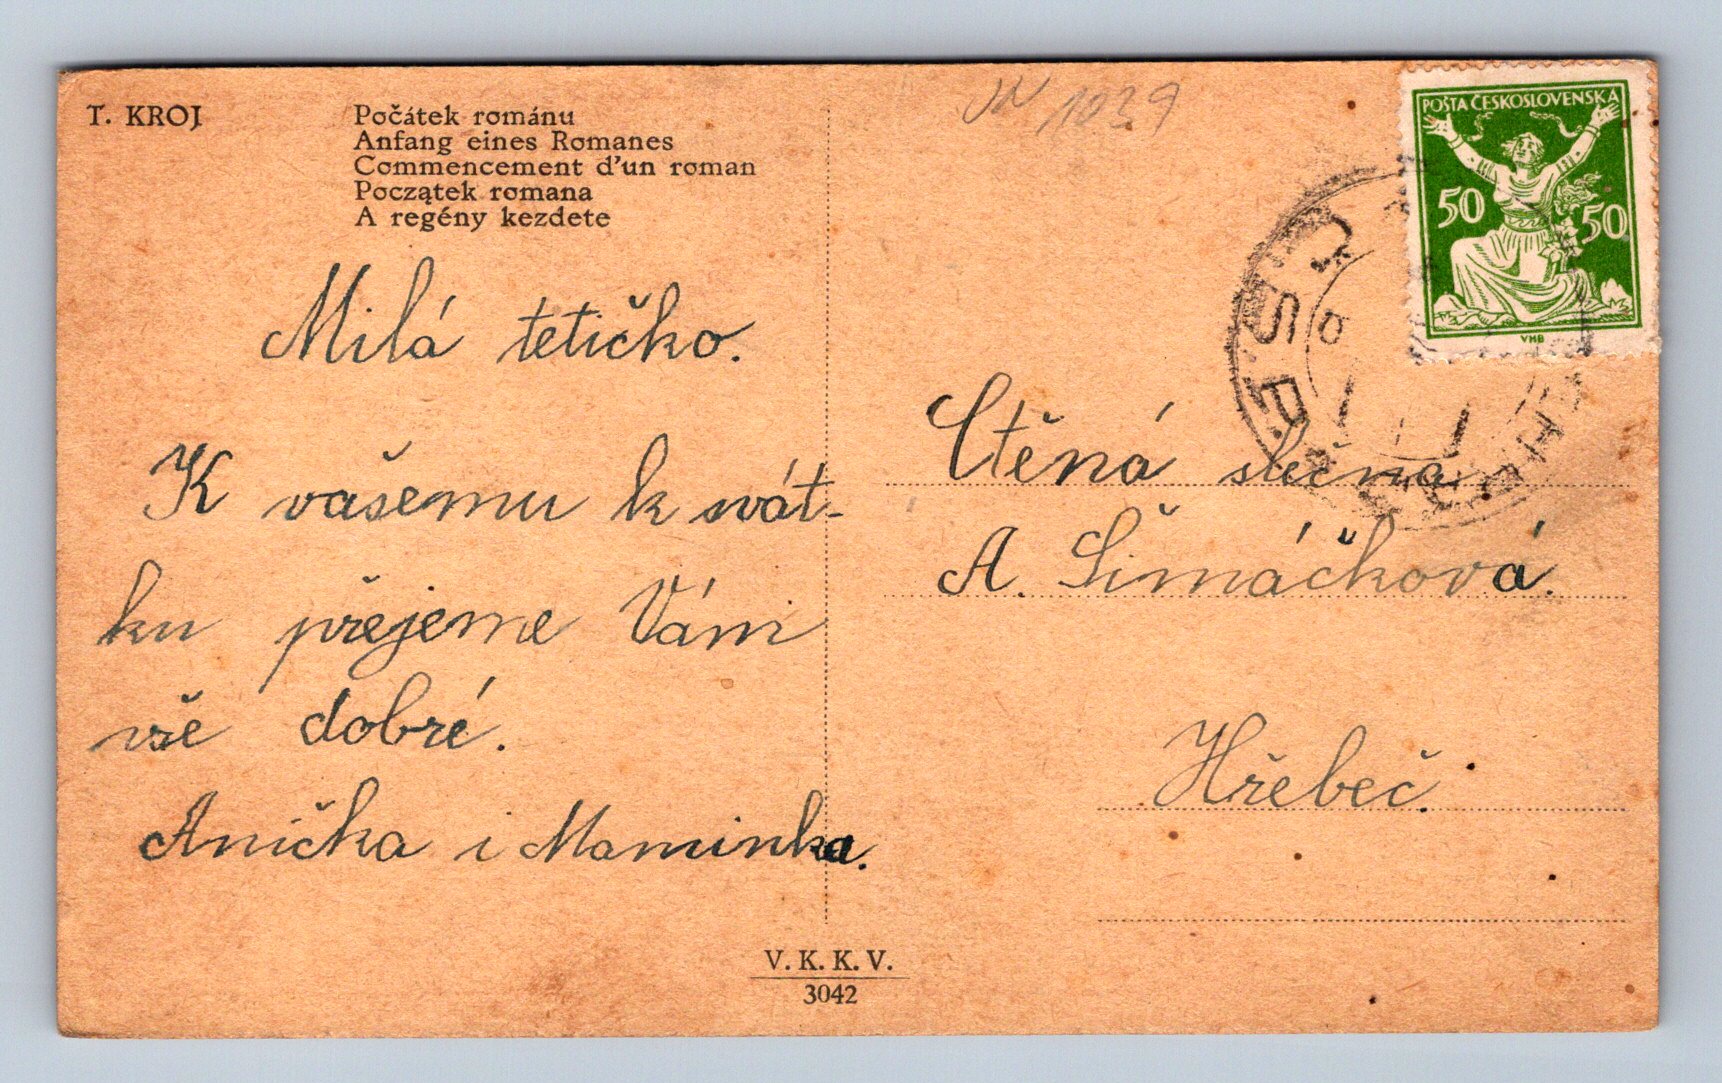 T. KROJ
Počátek románu
Anfang eines Romanes
Commencement d'un roman
Początek romana
A regény kezdete
1039
POŠTA ČESKOSLOVENSKÁ
50 50
VHB
Milá tetičko.
K vašemu k svát-
ku přejeme Vám
vše dobré.
Anička i Maminka.
Ctěná slečna
A. Šimáčková.
Hřebeč.
V. K. K. V.
3042